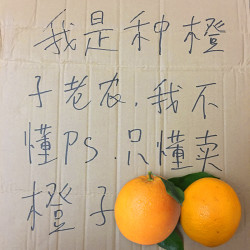 我是种橙
子老农,我不
懂PS.只懂卖
橙子